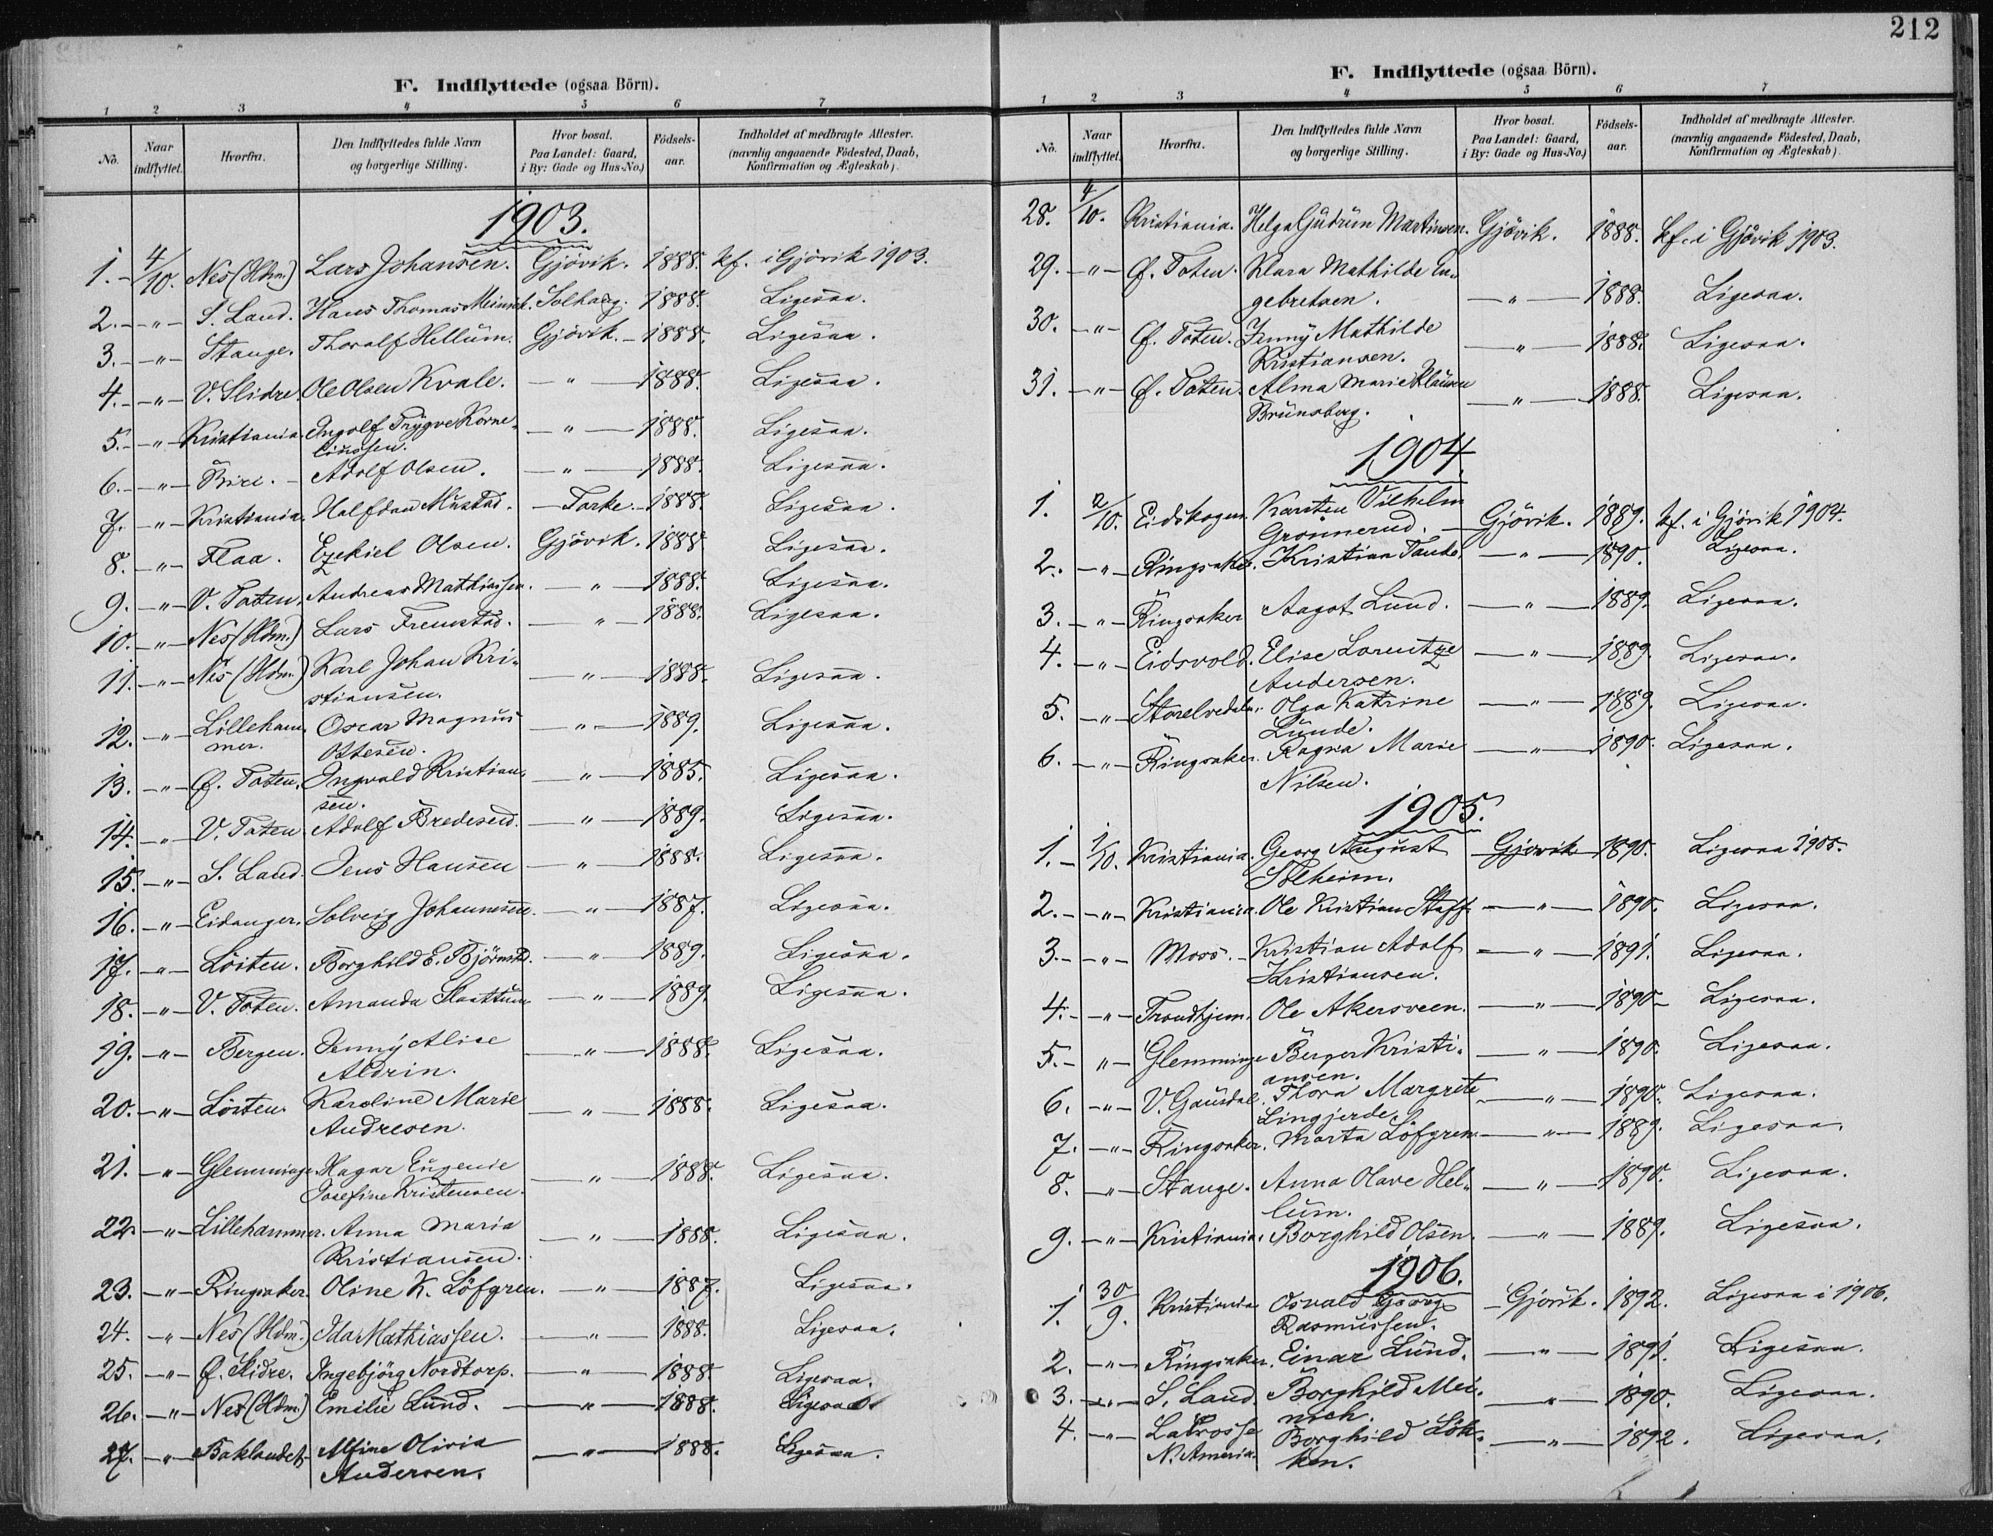 212
F. Indflyttede (ogsaa Börn).
1 2 3 4 5 6 7
No. Naar indflyttet. Hvorfra. Den Indflyttedes fulde Navn og borgerlige Stilling. Hvor bosat. Paa Landet: Gaard, i By: Gade og Hus-No.) Födsels-aar. Indholdet af medbragte Attester. (navnlig angaaende Födested, Daab, Konfirmation og Ægteskab).
1903.
1. 4/10. Nes (Hdm.) Lars Johansen. Gjövik. 1888. kf. i Gjövik 1903.
2. — " — S. Land. Hans Thomas Solhaug. 1888. Ligesaa.
3. — " — Stange. Thoralf Hellum. Gjövik. 1888. Ligesaa.
4. — " — V. Slidre. Ole Olsen Kvale. — " — 1888. Ligesaa.
5. — " — Kristiania. Ingolf Trygve Korne-
liussen. — " — 1888. Ligesaa.
6. — " — Biri. Adolf Olsen. — " — 1888. Ligesaa.
7. — " — Kristiania. Halfdan Mustad. — Farke. 1888. Ligesaa.
8. — " — Flaa. Ezekiel Olsen. Gjövik. 1888 Ligesaa.
9. — " — V. Toten. Andreas Mathiassen. — " — 1888. Ligesaa.
10. — " — Nes (Hdm.) Lars Fremstad. — " — 1888. Ligesaa.
11. — " — Nes (Hdm.) Karl Johan Kri-
stiansen. — " — 1888. Ligesaa.
12. — " — Lilleham-
mer. Oscar Magnus
Ottesen. — " — 1889. Ligesaa.
13. — " — Ø. Toten. Ingvald Kristian-
sen. — " — 1885. Ligesaa.
14. — " — V. Toten Adolf Bredesen. — " — 1889. Ligesaa.
15. — " — S. Land. Jens Hansen — " — 1888. Ligesaa.
16. — " — Eidanger. Solveig Johannesen. — " — 1887. Ligesaa.
17. — " — Löiten. Borghild E. Björnstad. — " — 1889. Ligesaa.
18. — " — V. Toten. Amanda — " — 1889. Ligesaa.
19. — " — Bergen. Jenny Alise
Aldrin. — " — 1888. Ligesaa.
20. — " — Löiten. Karoline Marie
Andresen. — " — 1888. Ligesaa.
21. — " — Glemminge. Hagar Eugenie
Josefine Kristensen. — " — 1888. Ligesaa.
22. — " — Lillehammer. Anna Maria
Kristiansen. — " — 1888. Ligesaa.
23. — " — Ringsaker. Oline K. Löfgren. — " — 1887. Ligesaa.
24. — " — Nes (Hdm.) Ida Mathiassen. — " — 1888. Ligesaa.
25. — " — Ø. Slidre. Ingebjörg Nordtorp. — " — 1888. Ligesaa.
26. — " — Nes (Hdm.) Emilie Lund. — " — 1888. Ligesaa.
27. — " — Baklandet. Alfine Olivia
Andersen. — " — 1888. Ligesaa.
F. Indflyttede (ogsaa Börn).
1 2 3 4 5 6 7
No. Naar indflyttet. Hvorfra. Den Indflyttedes fulde Navn og borgerlige Stilling. Hvor bosat. Paa Landet: Gaard, i By: Gade og Hus-No.) Födsels-aar. Indholdet af medbragte Attester. (navnlig angaaende Födested, Daab, Konfirmation og Ægteskab).
28. 4/10. Kristiania. Helga Gudrun Martinsen. Gjövik. 1888. kf. i Gjövik 1903.
29. — " — Ø. Toten. Klara Mathilde En-
gebretsen. — " — 1888. Ligesaa.
30. — " — Ø. Toten. Jenny Mathilde
Kristiansen. — " — 1888. Ligesaa.
31. — " — Ø. Toten. Alma Marie Klausen
Brunsberg. — " — 1888. Ligesaa.
1904.
1. 2/10. Eidskogen Karsten Vilhelm
Grönnerud. — Gjövik. 1889. kf. i Gjövik 1904.
2. — " — Ringsaker. Kristian — " — 1890. Ligesaa.
3. — " — Ringsaker Aagot Lund. — " — 1889. Ligesaa.
4. — " — Eidsvold. Elise Lorentze
Andersen. — " — 1889. Ligesaa.
5. — " — Storelvedalen. Olga Katrine
Lunde. — " — 1889. Ligesaa.
6. — " — Ringsaker. Ragna Marie
Nilsen. — " — 1890. Ligesaa.
1905.
1. 1/10. Kristiania. Georg August
Solheim. Gjövik 1890. Ligesaa 1905.
2. — " — Kristiania. Ole Kristian Staff. — " — 1890. Ligesaa.
3. — " — Moss. Kristian Adolf
Kristiansen. — " — 1891. Ligesaa.
4. — " — Trondhjem. Ole Akersveen. — " — 1890. Ligesaa.
5. — " — Glemminge Berger Kristi-
ansen. — " — 1890. Ligesaa.
6. — " — V. Gausdal. Thora Margrete
Lingjerde. — " — 1890. Ligesaa.
7. — " — Ringsaker. Marta Löfgren. — " — 1889. Ligesaa.
8. — " — Stange. Anna Olave Hel-
lum. — " — 1890. Ligesaa.
9. — " — Kristiania. Borghild Olsen. — " — 1889. Ligesaa.
1906.
1. 30/9. Kristiania Osvald Georg
Rasmussen. — Gjövik. 1892. Ligesaa i 1906.
2. — " — Ringsaker. Einar Lund. — " — 1891. Ligesaa.
3. — " — S. Land. Borghild Mei-
nich. — " — 1890. Ligesaa.
4. — " — La Crosse
N. Ameria. Borghild Lök-
ken. — " — 1892. Ligesaa.